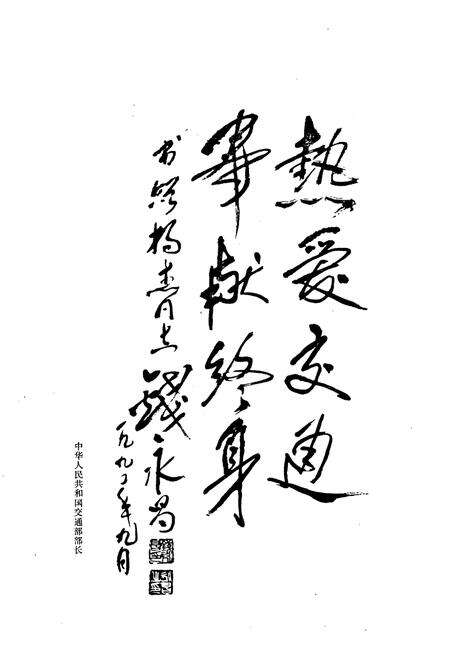 熱愛交通
献终身
书赠杨杰同志 錢永昌
一九九〇年九月
中华人民共和国交通部部长